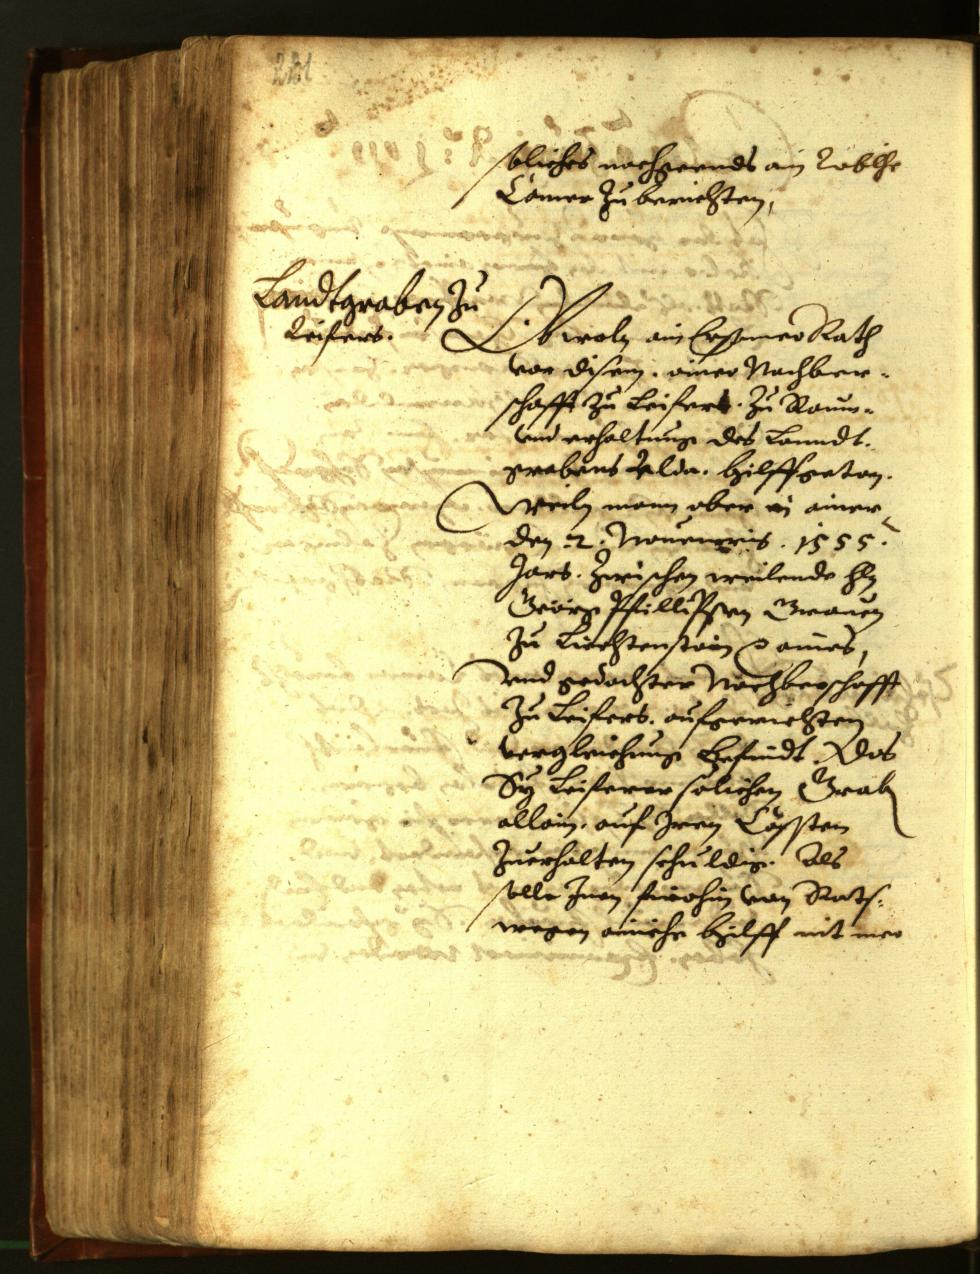 221
solliches nachgeends ain Lobliche
Camer zu berichten,
Landtgraben zu
Leifers.
Obwoln ain Ersamer Rath
vor disem. ainer Nachber-
schafft zu Leifers. zu Raum-
und erhaltung des Lanndt-
grabens hilffgeton.
Weiln mann aber in ainer
den 2. Nouembris. 1555.
Jars. zwischen weilende hln
Geörg Phillipsen Grauen
zu Liechtenstain
und gedachter Nachberschafft
zu Leifers. aufgerichten
vergleichung befindt. Das
Sy Leiferer solichen Grab
allain. auf Iren Cossten
zuerhalten schuldig. Als
solle Inen firohin von Rats-
wegen ainiche hilff nit mer